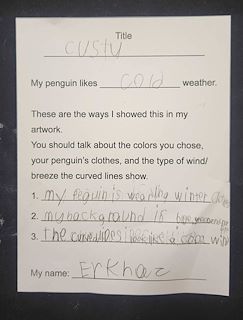 Title
custy
My penguin likes cold weather.
These are the ways I showed this in my
artwork.
You should talk about the colors you chose,
your penguin's clothes, and the type of wind/
breeze the curved lines show.
1. my peguin is wearing winter
2. my background is
3. the curved lines like a cold wind
My name: Erkhaz